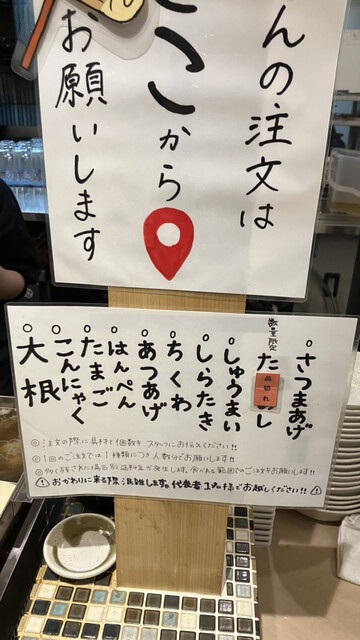 んの注文は
ここから
お願いします
さつまあげ
数量限定
品切れ
しゅうまい
しらたき
ちくわ
あつあげ
はんぺん
たまご
こんにゃく
大根
◎注文の際に具材と個数を、スタッフにお伝えください!!
◎1回のご注文では1種類につき人数分でお願いします!!
おかわりに来る際、混雑します。代表者1名様でお越しください!!